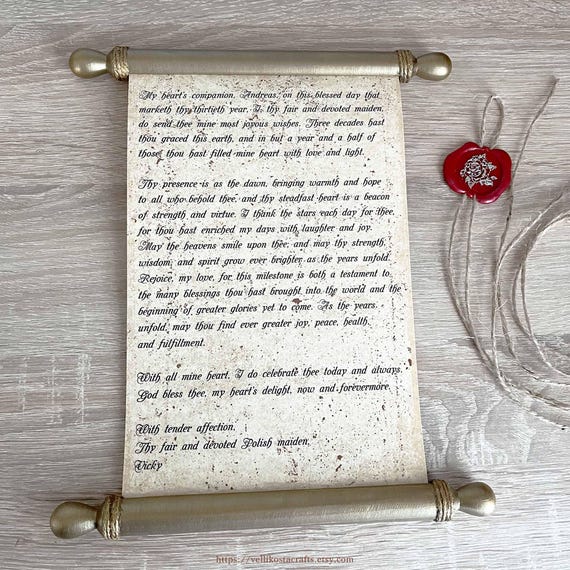 My heart's companion, Andreas, on this blessed day that
marketh thy thirtieth year, I, thy fair and devoted maiden,
do send thee mine most joyous wishes. Three decades hast
thou graced this earth, and in but a year and a half of
those, thou hast filled mine heart with love and light.
Thy presence is as the dawn, bringing warmth and hope
to all who behold thee, and thy steadfast heart is a beacon
of strength and virtue. I thank the stars each day for thee,
for thou hast enriched my days with laughter and joy.
May the heavens smile upon thee, and may thy strength,
wisdom, and spirit grow ever brighter as the years unfold.
Rejoice, my love, for this milestone is both a testament to
the many blessings thou hast brought into the world and the
beginning of greater glories yet to come. As the years
unfold, may thou find ever greater joy, peace, health,
and fulfillment.
With all mine heart, I do celebrate thee today and always.
God bless thee, my heart's delight, now and forevermore.
With tender affection,
Thy fair and devoted Polish maiden,
Vicky
https://vellikostacrafts.etsy.com